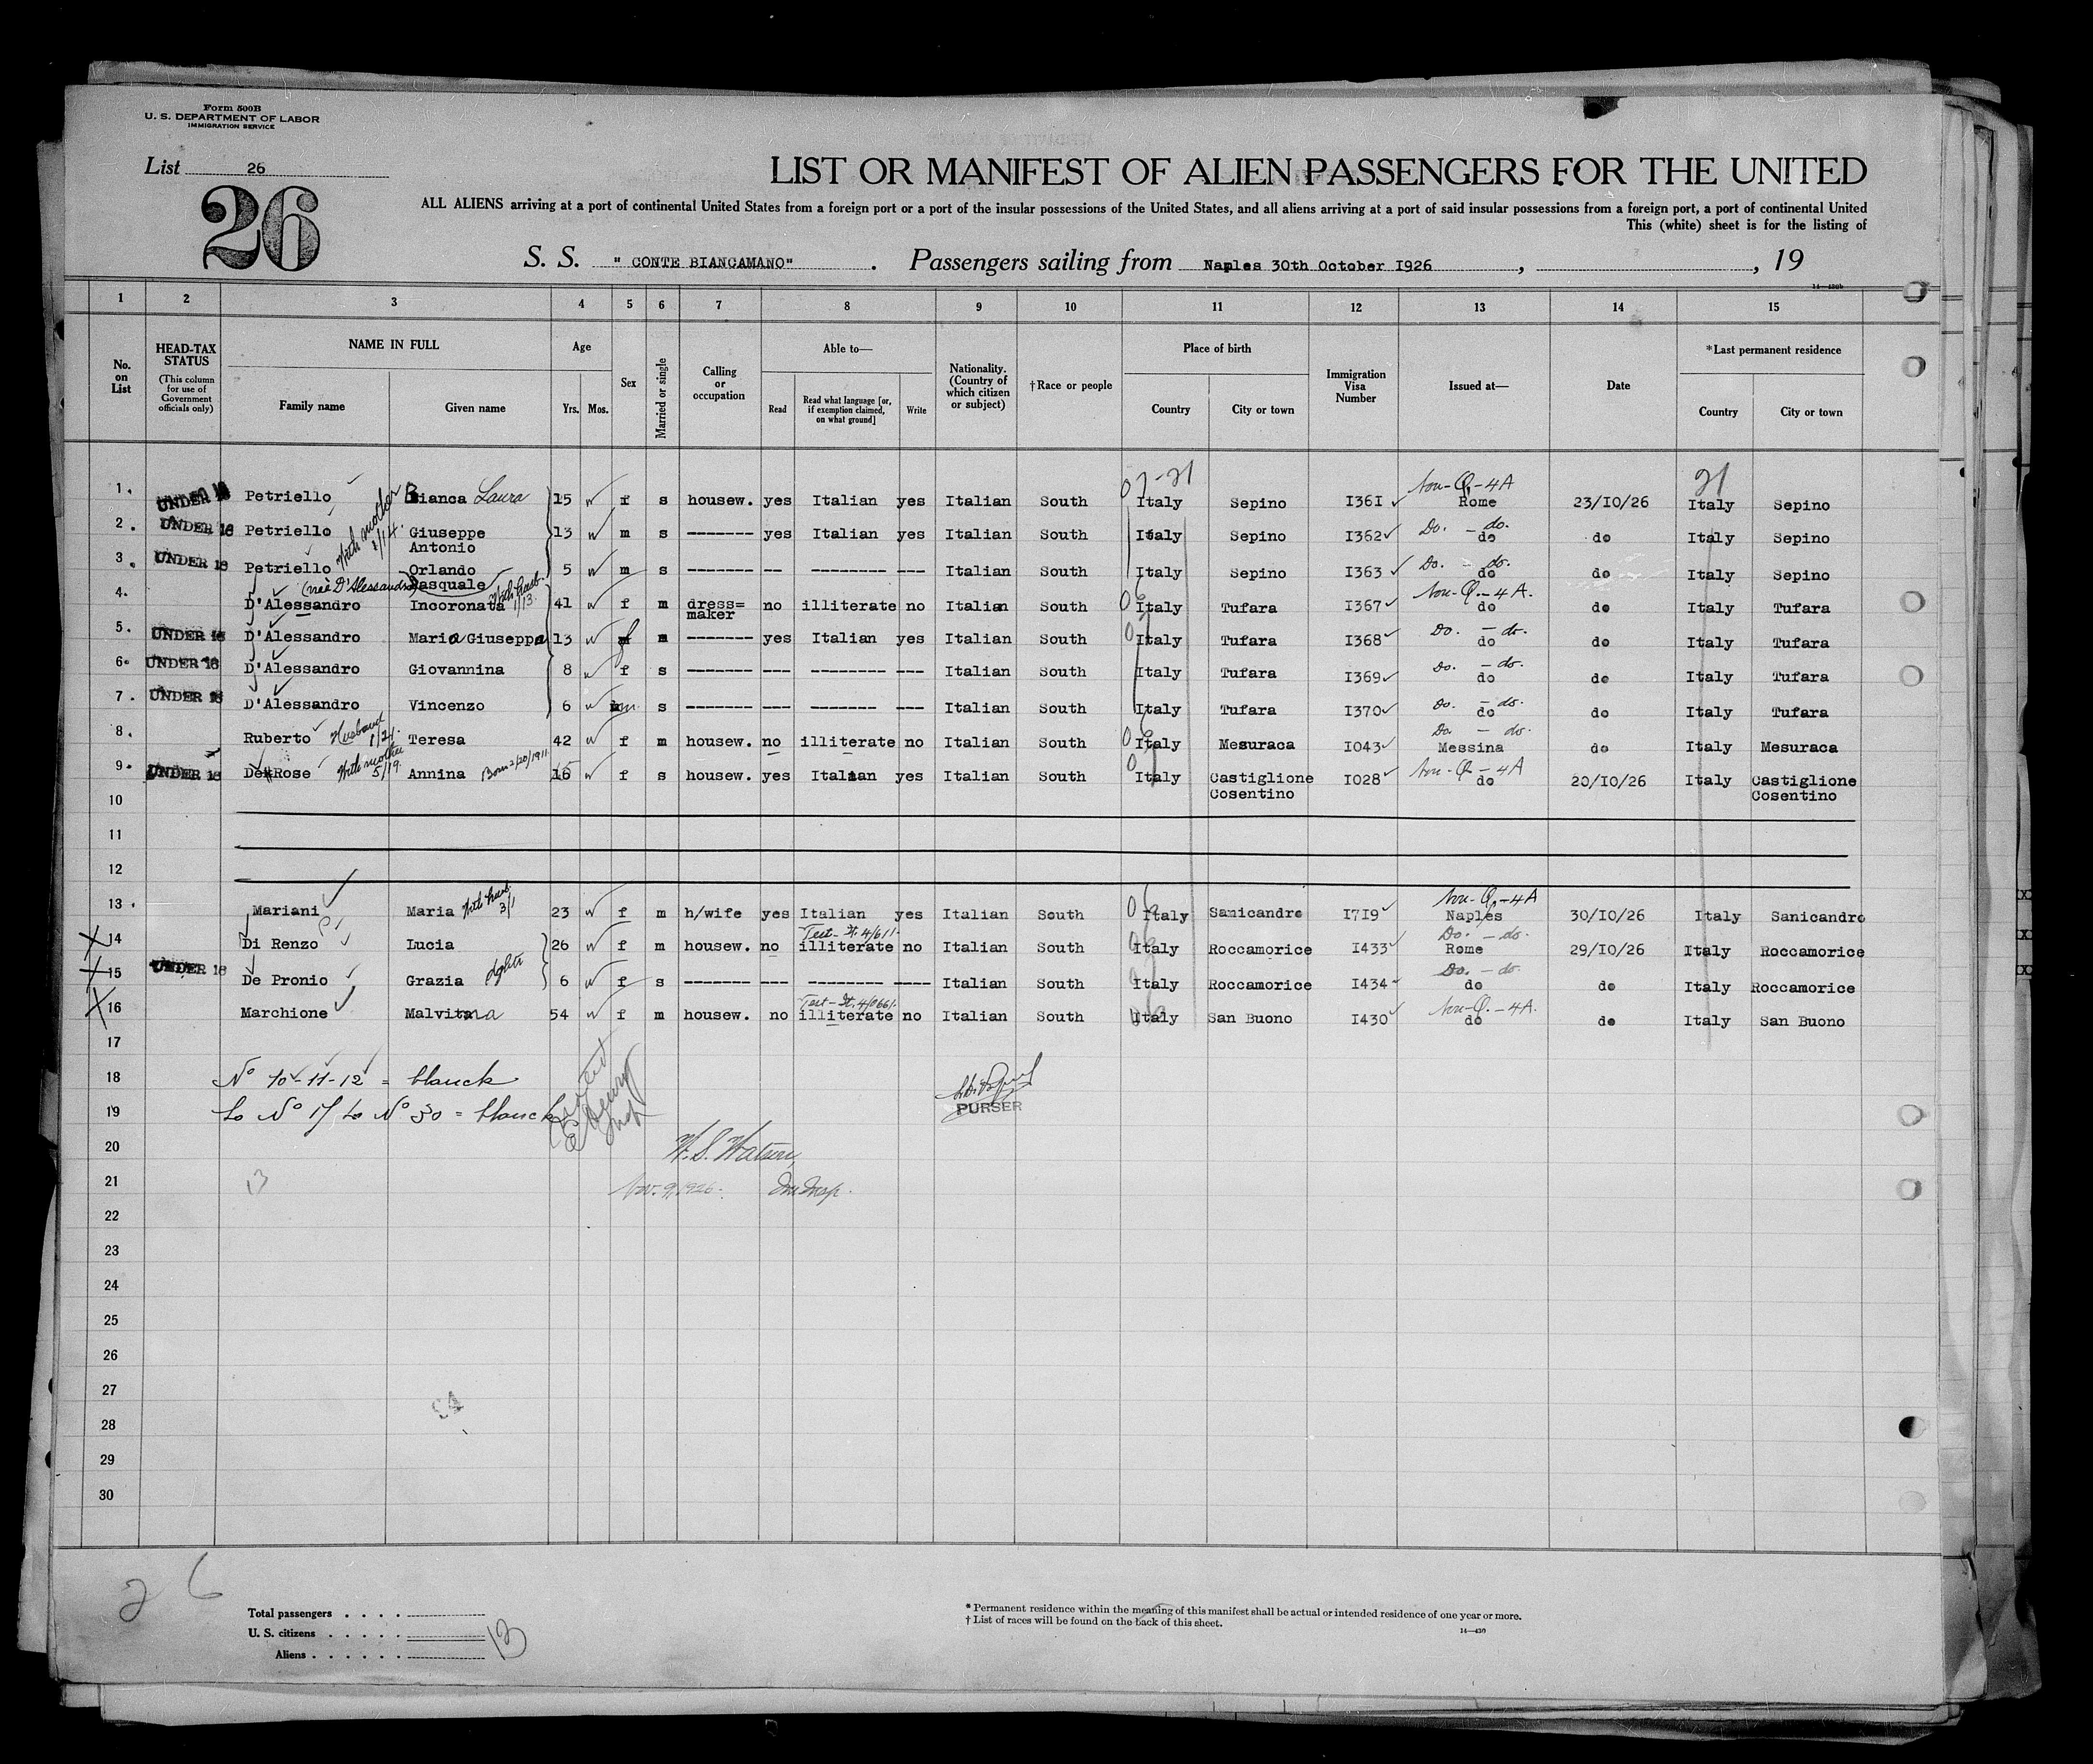 Form 500B
U. S. DEPARTMENT OF LABOR
IMMIGRATION SERVICE
List 26
26
LIST OR MANIFEST OF ALIEN PASSENGERS FOR THE UNITED
ALL ALIENS arriving at a port of continental United States from a foreign port or a port of the insular possessions of the United States, and all aliens arriving at a port of said insular possessions from a foreign port, a port of continental United
This (white) sheet is for the listing of
S. S. " CONTE BIANCAMANO" . Passengers sailing from Naples 30th October I926 , , 19
14—430b
1 2 3 4 5 6 7 8 9 10 11 12 13 14 15
No. on List
HEAD-TAX STATUS (This column for use of Government officials only)
NAME IN FULL
Family name Given name
Age
Yrs. Mos.
Sex
Married or single
Calling or occupation
Able to—
Read
Read what language [or, if exemption claimed, on what ground]
Write
Nationality. (Country of which citizen or subject)
†Race or people
Place of birth
Country City or town
Immigration Visa Number
Issued at—
Date
*Last permanent residence
Country City or town
07-21 Non-Q-4A 21
1. UNDER 16 Petriello Bianca Laura 15 w f s housew. yes Italian yes Italian South Italy Sepino I36I Rome 23/IO/26 Italy Sepino
With mother 1/14.
2. UNDER 16 Petriello Giuseppe Antonio 13 w m s ------- yes Italian yes Italian South Italy Sepino I362 Do. - do. do do Italy Sepino
3. UNDER 16 Petriello Orlando Pasquale 5 w m s ------- -- -------- --- Italian South Italy Sepino I363 Do. - do. do do Italy Sepino
(neè D'Alessandro) With husb. 1/13. Non-Q.-4A.
4. D'Alessandro Incoronata 41 w f m dress=maker no illiterate no Italian South Italy Tufara I367 do do Italy Tufara
5. UNDER 16 D'Alessandro Maria Giuseppa 13 w f m ------- yes Italian yes Italian South Italy Tufara I368 Do. - do. do do Italy Tufara
6. UNDER 16 D'Alessandro Giovannina 8 w f s ------- --- -------- --- Italian South Italy Tufara I369 Do. - do. do do Italy Tufara
7. UNDER 16 D'Alessandro Vincenzo 6 w m s ------- --- ------- --- Italian South Italy Tufara I370 Do. - do. do do Italy Tufara
8. Ruberto Husband 1/24. Teresa 42 w f m housew. no illiterate no Italian South Italy Mesuraca I043 Do. - do. Messina do Italy Mesuraca
9. UNDER 16 De Rose With mother 5/19. Annina Born 2/20/1911 16 w f s housew. yes Italian yes Italian South Italy Castiglione Cosentino I028 Non-Q-4A do 20/IO/26 Italy Castiglione Cosentino
10
11
12
13. Mariani Maria With husb. 3/1 23 w f m h/wife yes Italian yes Italian South Italy Sanicandro I7I9 Non-Q.-4A Naples 30/IO/26 Italy Sanicandro
X 14 Di Renzo Lucia 26 w f m housew. no illiterate no Italian South Italy Roccamorice I433 Do. - do. Rome 29/IO/26 Italy Roccamorice
X 15 UNDER 16 De Pronio Grazia 6 w f s ------- --- -------- ---- Italian South Italy Roccamorice I434 Do. - do. do do Italy Roccamorice
X 16 Marchione Malvina 54 w f m housew. no illiterate no Italian South Italy San Buono I430 Non-Q.-4A. do do Italy San Buono
17
18 No 10-11-12 = blanck
19 to No 17 to No 30 = blanck PURSER
20 W. S. Watson,
21 13 Nov. 9, 1926. Im. Insp.
22
23
24
25
26
27
28
29
30
26
Total passengers . . . .
U. S. citizens . . . . . 13
Aliens . . . . . .
* Permanent residence within the meaning of this manifest shall be actual or intended residence of one year or more.
† List of races will be found on the back of this sheet.
14—430